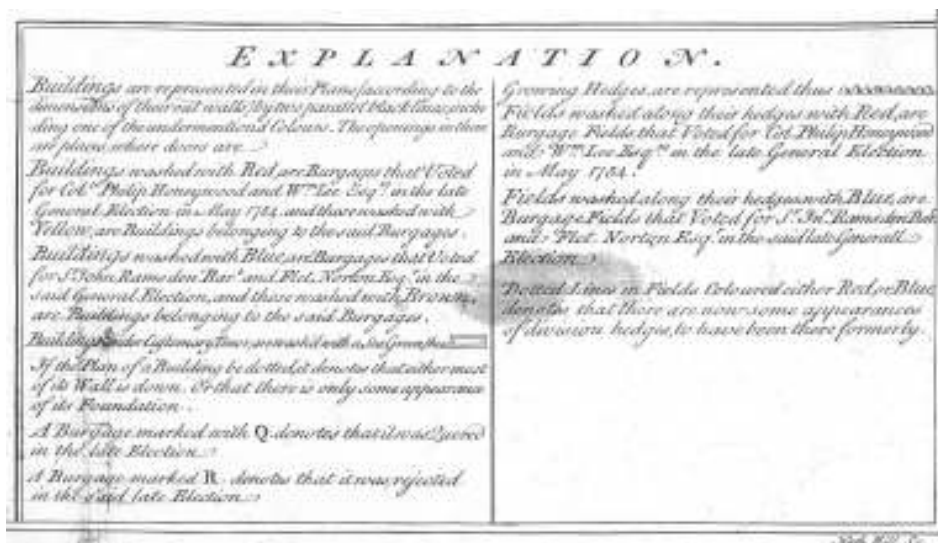 EXPLANATION.
Buildings are represented in their Plans (according to the
dimensions of their out walls) by two parallel black lines, inclu
ding one of the undermentiond Colours. The openings in them
are places where doors are
Buildings washed with Red, are Burgages that Voted
for Col. Philip Honeywood and Wm. Lee Esqr. in the late
General Election in May 1754. and those washed with
Yellow, are Buildings belonging to the said Burgages.
Buildings washed with Blue, are Burgages that Voted
for Sr. John Ramsden Bart. and Flet. Norton Esqr. in the
said General Election, and those washed with Brown,
are Buildings belonging to the said Burgages.
Buildings under Customary Tenor, are washed with a Sea Green, thus
If the Plan of a Building be dotted, it denotes that either most
of its Wall is down. Or that there is only some appearance
of its Foundation.
A Burgage marked with Q. denotes that it was Queried
in the late Election
A Burgage marked R. denotes that it was rejected
in the said late Election
Growing Hedges, are represented thus
Fields washed along their hedges with Red, are
Burgage Fields that Voted for Col. Philip Honeywood
and Wm. Lee Esqr. in the late General Election
in May 1754.
Fields washed along their hedges with Blue, are
Burgage Fields that Voted for Sr. Jno. Ramsden Bart
and Flet. Norton Esqr. in the said late Generall
Election
Dotted Lines in Fields Coloured either Red, or Blue
denotes that there are now some appearances
of division hedges, to have been there formerly.